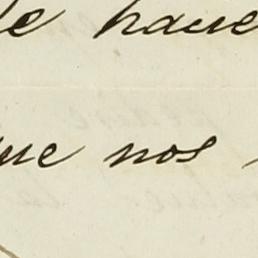 le haue
que nos